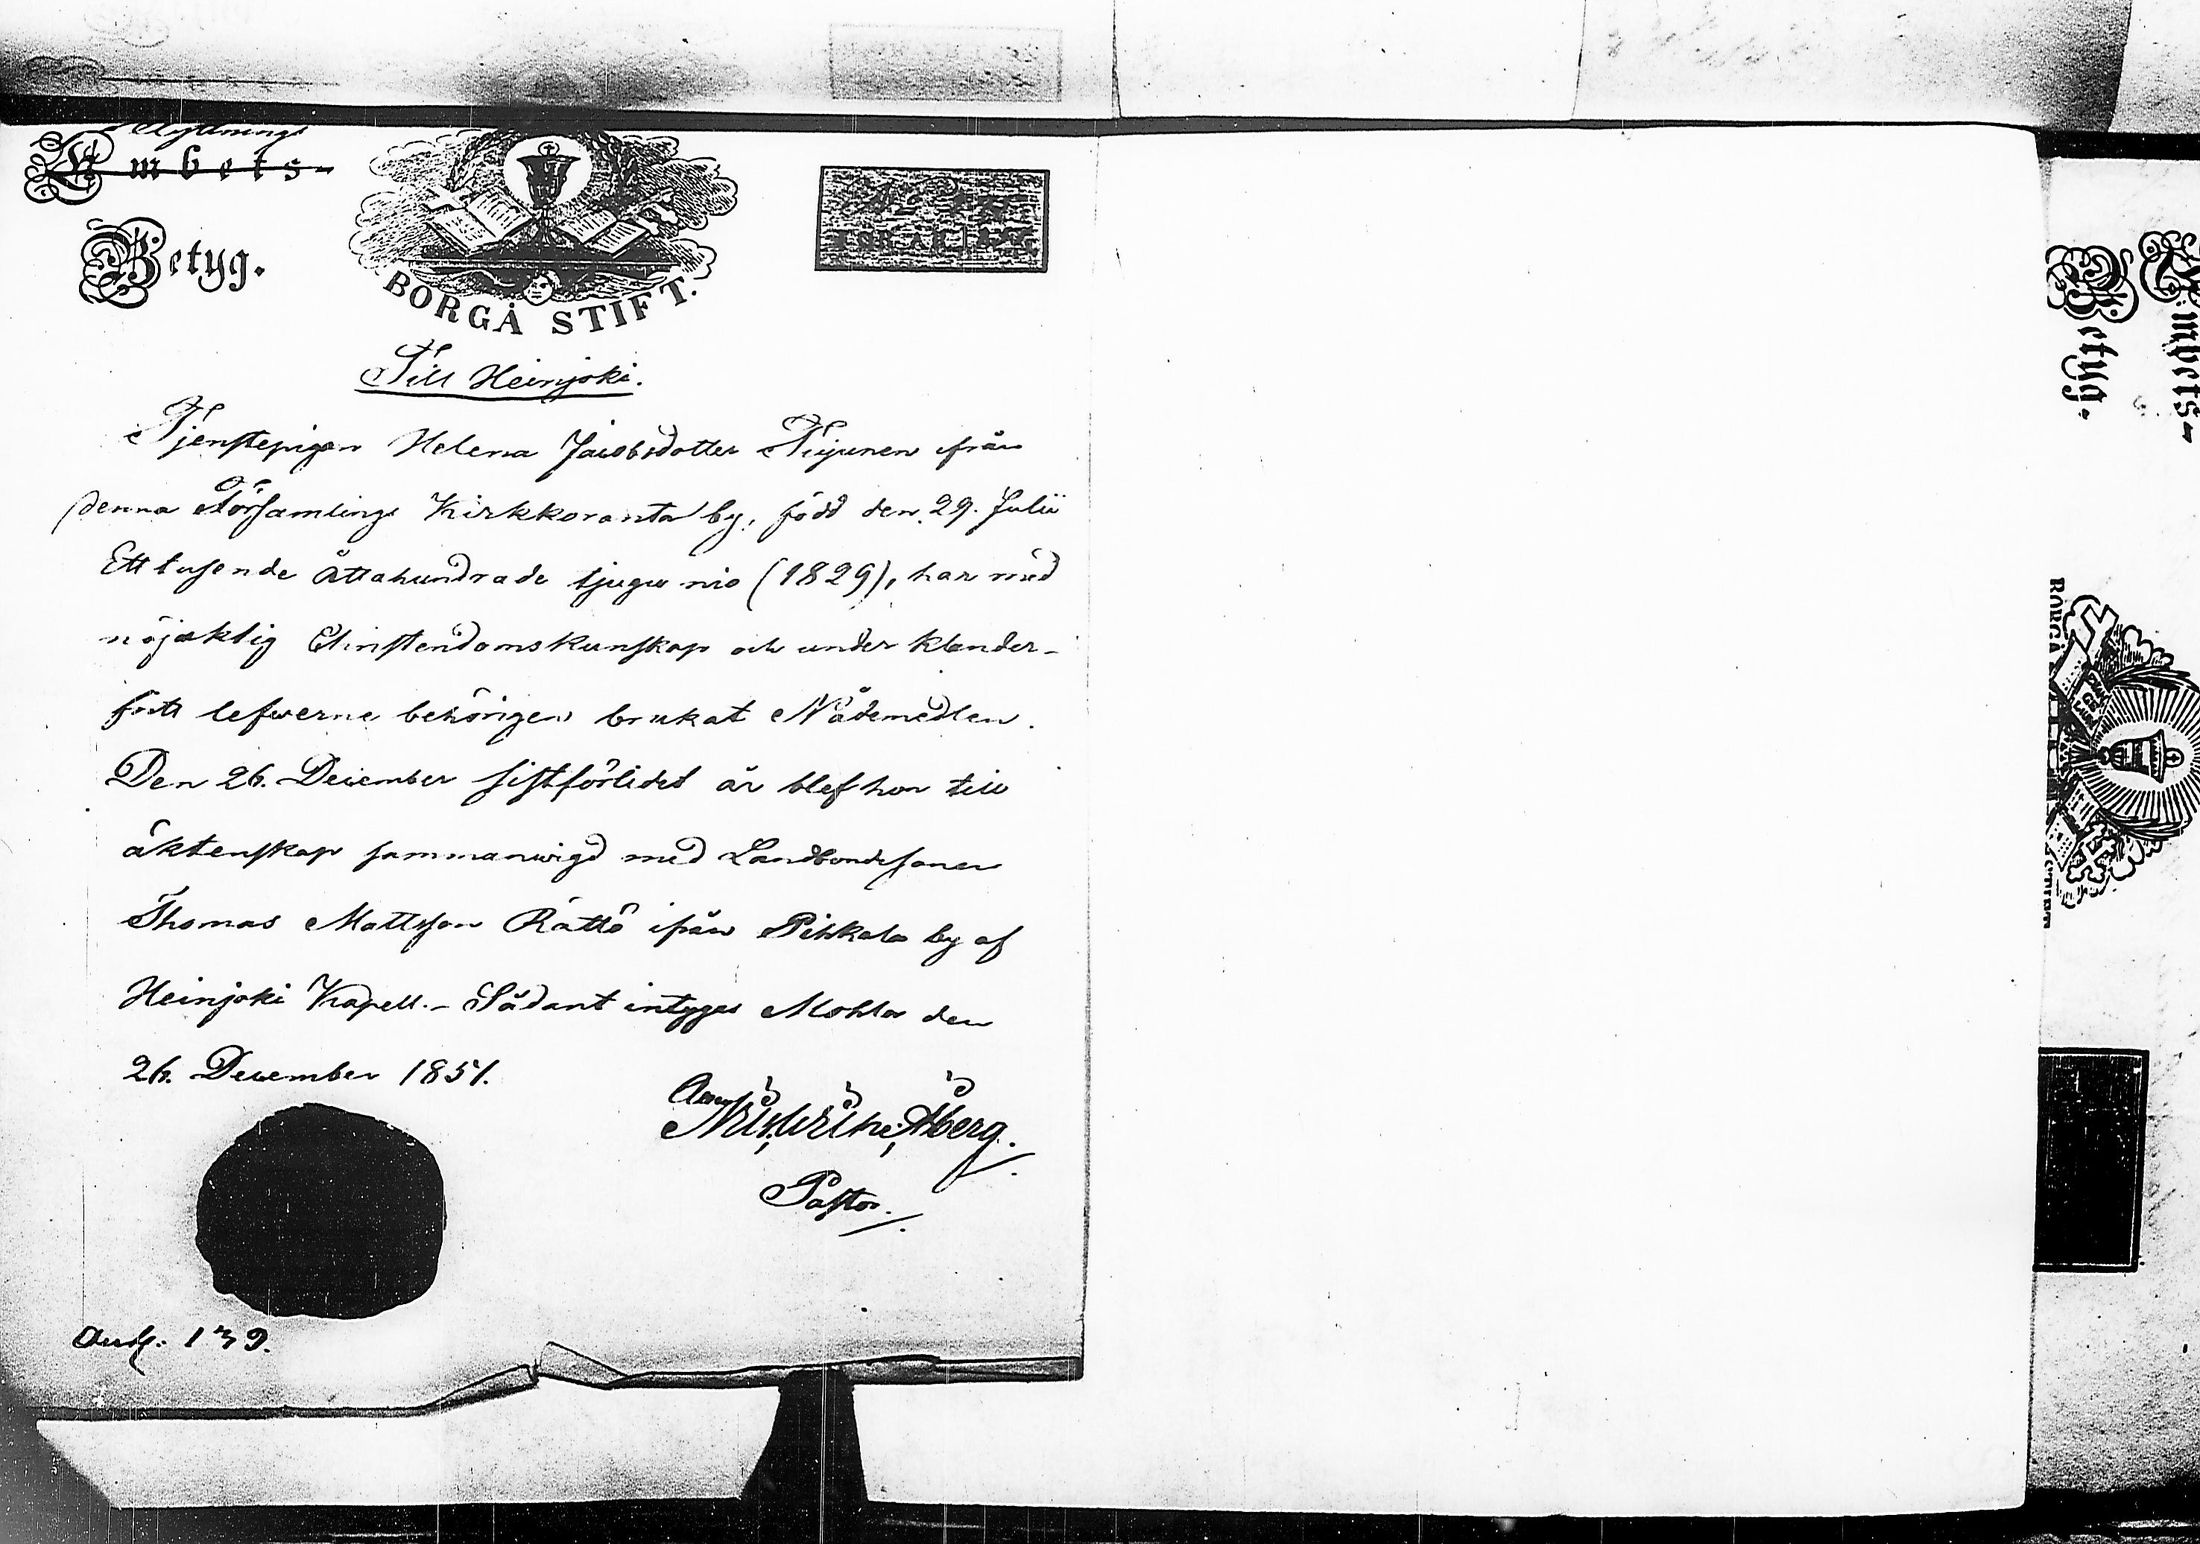 flyttnings
Embets-
Betyg.
BORGÅ STIFT.
Till Heinjoki.
Tjenstepigan Helena Jacobsdotter Tiijunen ifrån
denna Församlings Kirkkoranta by, född den 29. Julii
Ett tusende åttahundrade tjugu nio (1829), har med
nöjaktig Christendomskunskap och under klander-
fritt lefwerne behörigen brukat Nådemedlen.
Den 26. December sistförlidet år blef hon till
äktenskap sammanwigd med Landbondesonen
Thomas Mattsson Rättö ifrån Pihkala by af
Heinjoki Kapell. – Sådant intygas Mohla den
26. December 1851.
Nils Wilh. Åberg.
Pastor.
139.
Embets-
Betyg.
BORGÅ